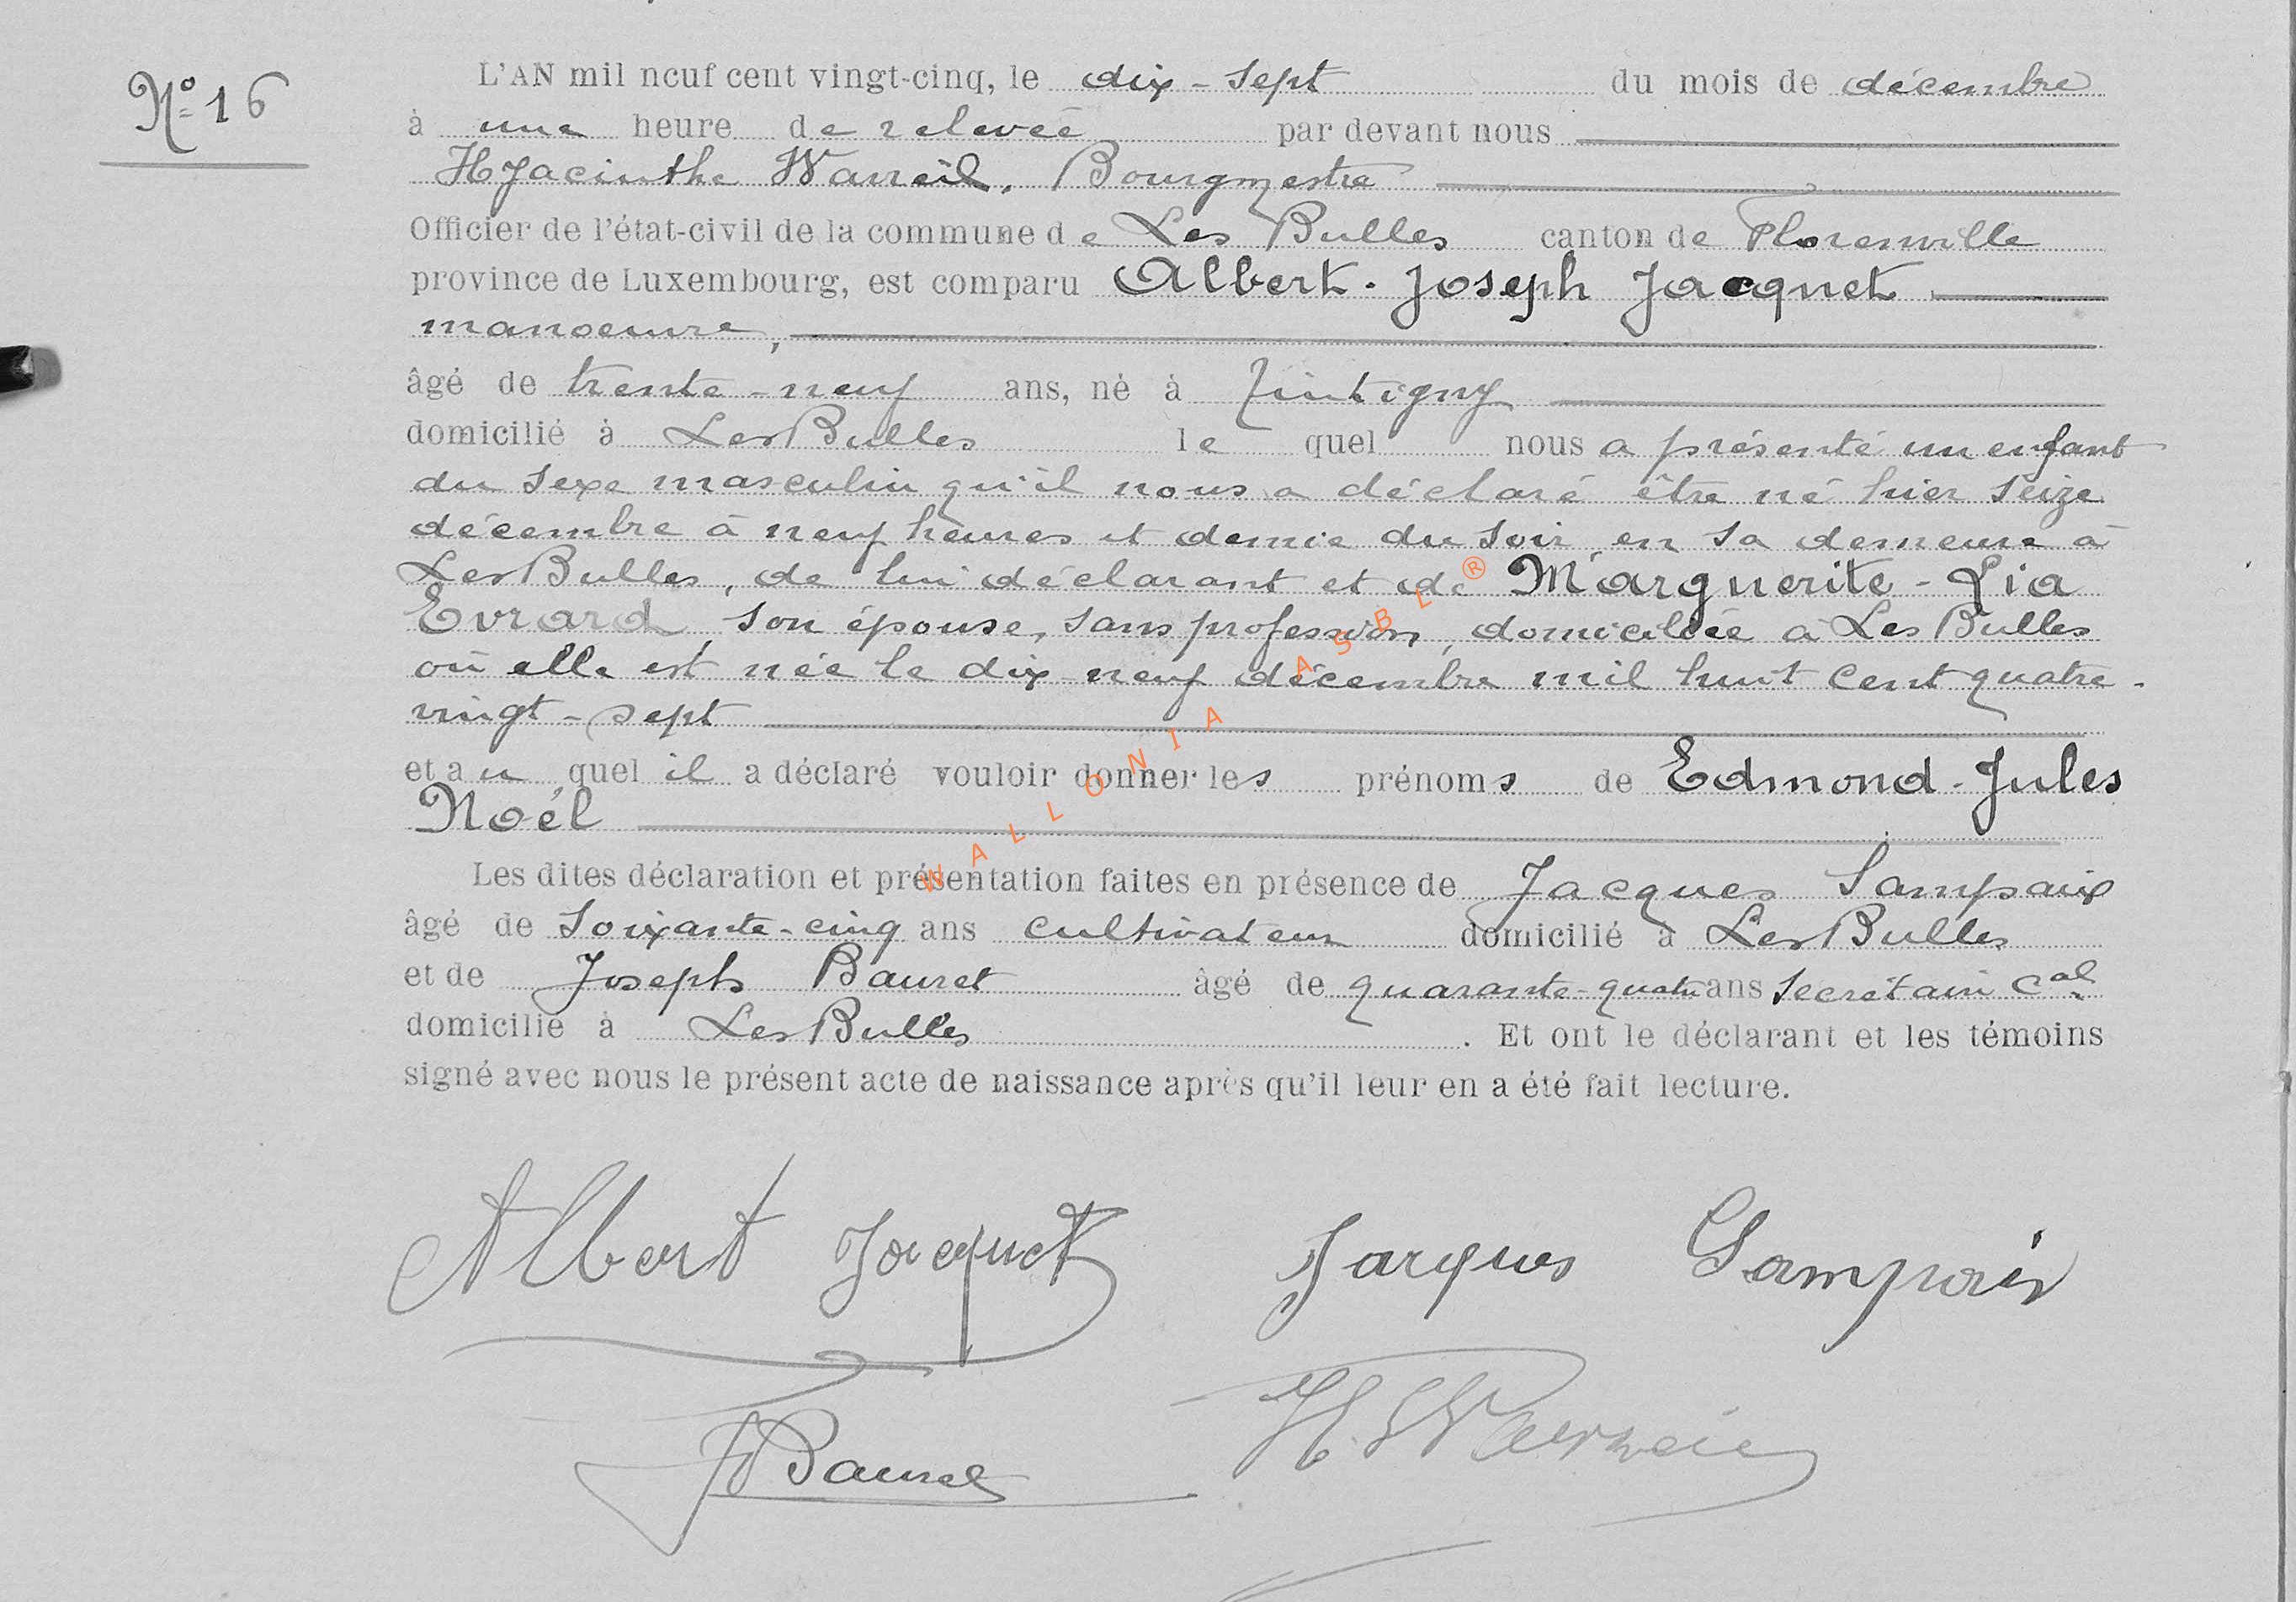 N° 16
L'AN mil neuf cent vingt-cinq, le dix-sept du mois de décembre
à une heure de relevée par devant nous
Hyacinthe Warreil, Bourgmestre
Officier de l'état-civil de la commune de Les Bulles canton de Florenville
province de Luxembourg, est comparu Albert-Joseph Jacquet
manoeuvre,
âgé de trente-neuf ans, né à Tintigny
domicilié à Les Bulles le quel nous a présenté un enfant
du sexe masculin qu'il nous a déclaré être né hier seize
décembre à neuf heures et demie du soir en sa demeure à
Les Bulles, de lui déclarant et de Marguerite-Lia
Evrard, son épouse, sans profession, domiciliée à Les Bulles
où elle est née le dix-neuf décembre mil huit cent quatre-
vingt-sept
et au quel il a déclaré vouloir donner les prénoms de Edmond-Jules
Noél
Les dites déclaration et présentation faites en présence de Jacques Sampaix
âgé de soixante-cinq ans cultivateur domicilié à Les Bulles
et de Joseph Bauret âgé de quarante-quatre ans secrétaire cal
domicilié à Les Bulles. Et ont le déclarant et les témoins
signé avec nous le présent acte de naissance après qu'il leur en a été fait lecture.
Albert Jacquet Jacques Sampaix
J Bauret H. Warreil
WALLONIA ASBL ®